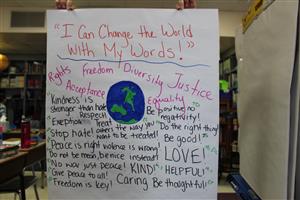 "I Can Change the World
With My Words!"
Rights Freedom Diversity Justice
Acceptance Equality
"Kindness" is
stronger than hate
Respect!
Be positive no
negativity!
Exception
Treat
others the way you
want to be treated!
"Do the right thing!
Stop hate!
Be good!
Peace is right violence is wrong!
Do not be mean, be nice instead!
LOVE!
No war just peace! KIND!
HELPFUL!
Give peace to all!
Freedom is key! Caring Be thoughtful!